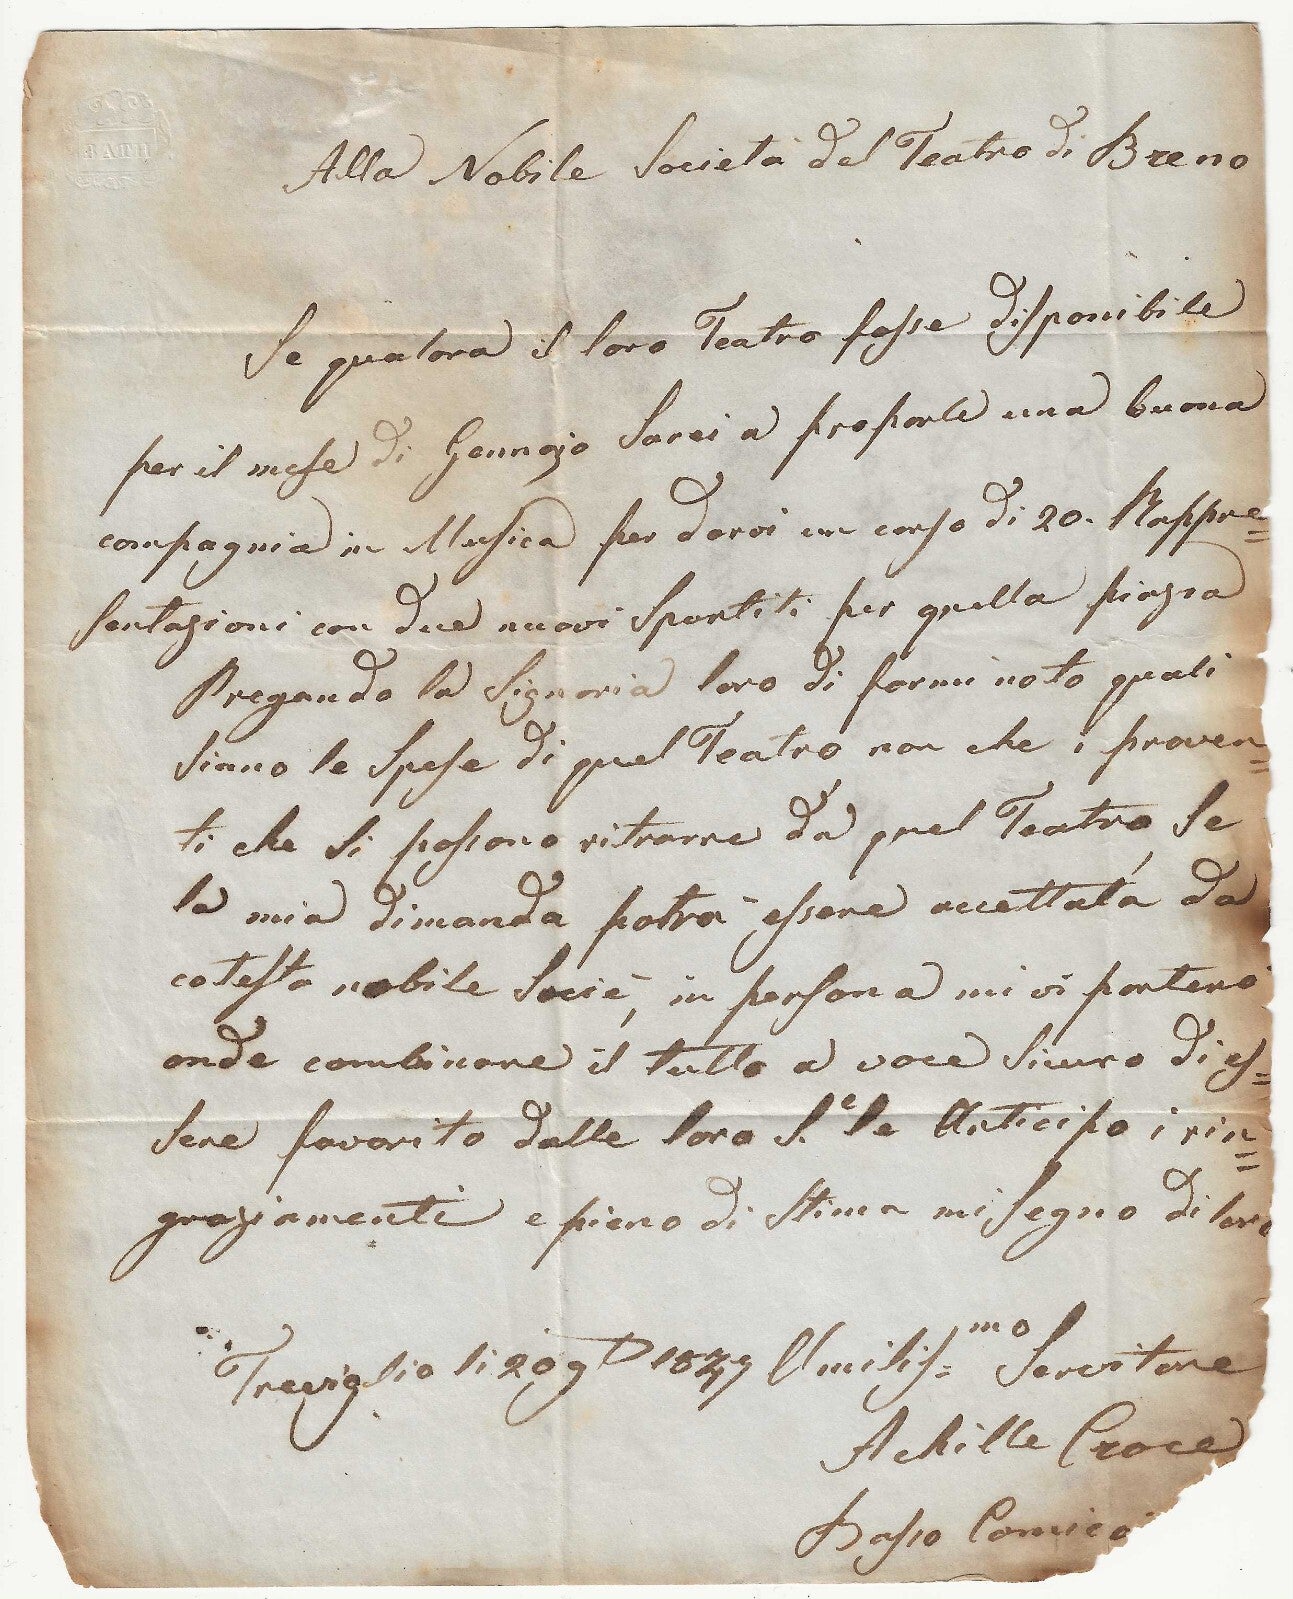 BATH
Alla Nobile Società del Teatro di Breno
Se qualora il loro Teatro fosse disponibile
per il mese di Gennajo Sarei a proporle una buona
compagnia in Musica per darvi un corso di 20. Rappre=
sentazioni con due nuovi Spartiti per quella piazza
Pregando la Signoria loro di farmi noto quali
siano le Spese di quel Teatro non che i proven=
ti che si possono ritrarre da quel Teatro, Se
la mia dimanda potrà essere accettata da
cotesta nobile Socie, in persona mi vi porterò
onde combinare il tutto a voce sicuro di es=
sere favorito dalle loro S.e le Anticipo i rin=
graziamenti e pieno di Stima mi Segno di loro
Treviglio li 20 9 Umilis=mo Servitore
Achille Croce
Basso Comico